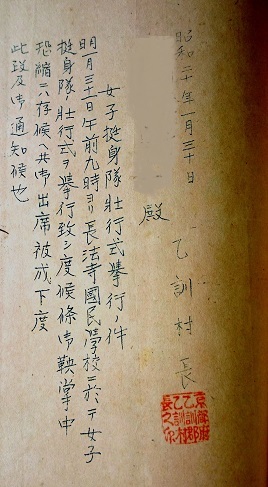 昭和二十年一月三十日
乙訓村長
殿
女子挺身隊壮行式挙行ノ件
明一月三十一日午前九時ヨリ長法寺國民学校ニ於テ女子
挺身隊ノ壮行式ヲ挙行致シ度候條御鞅掌中
恐縮ニハ存候ヘ共御出席被成下度
此段及御通知候也
京都府
乙訓郡
乙訓村
長之印